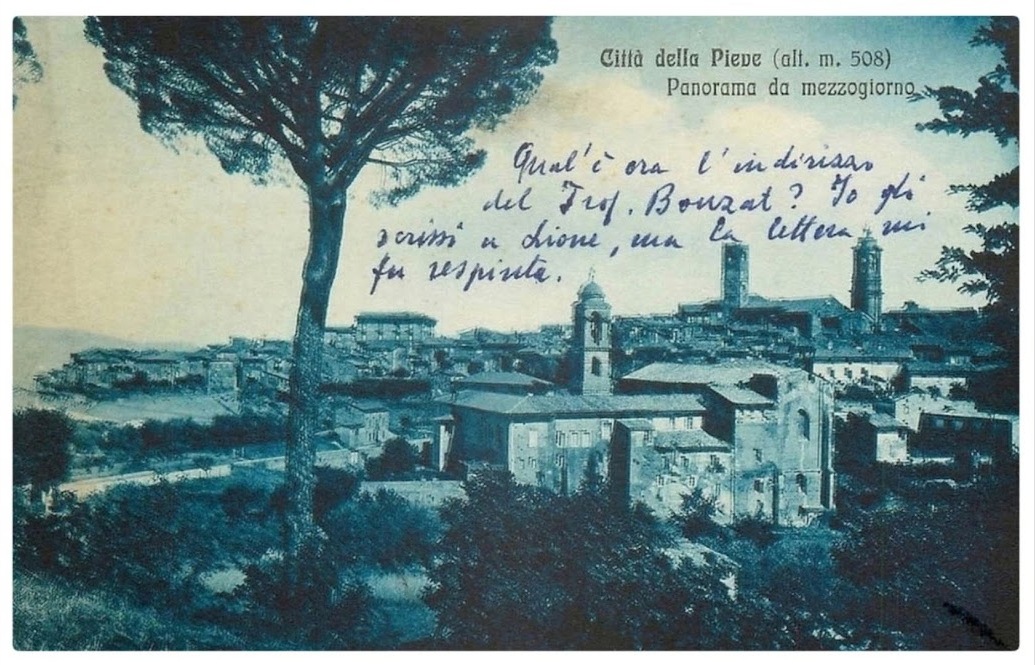 Città della Pieve (alt. m. 508)
Panorama da mezzogiorno
Qual'è ora l'indirizzo
del Prof. Bonzat? Io gli
scrissi a Lione, ma la lettera mi
fu respinta.